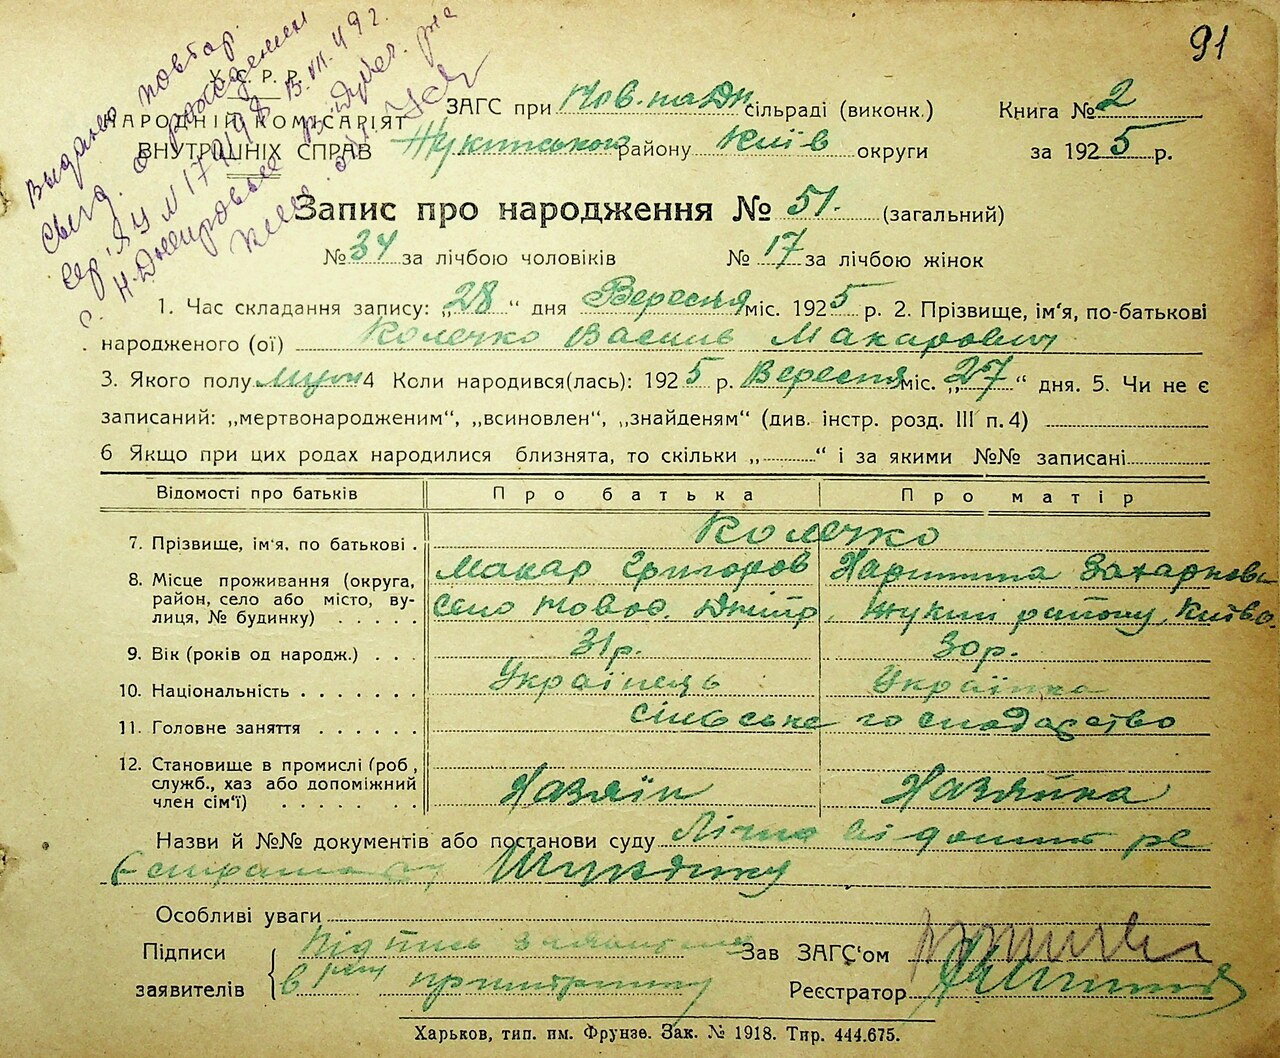 91
Выдано повтор.
свид. о рождении
У. С. Р. Р.
НАРОДНІЙ КОМІСАРІЯТ
ВНУТРІШНІХ СПРАВ
ЗАГС при Нов. на Дн. сільраді (виконк.) Книга № 2
Жукинського району Київ округи за 1925 р.
Запис про народження № 51. (загальний)
№ 34 за лічбою чоловіків № 17 за лічбою жінок
1. Час складання запису: „28“ дня Вересня міс. 1925 р. 2. Прізвище, ім‘я, по-батькові
народженого (ої) Колечко Василь Макарович
3. Якого полу муж 4 Коли народився(лась): 1925 р. Вересня міс. „27“ дня. 5. Чи не є
записаний: „мертвонародженим“, „всиновлен“, „знайденям“ (див. інстр. розд. III п. 4)
6 Якщо при цих родах народилися близнята, то скільки „ “ і за якими №№ записані
Відомості про батьків Про батька Про матір
7. Прізвище, ім‘я, по батькові . Колечко
Макар Григоров Харитина Захаровна
8. Місце проживання (округа, район, село або місто, вулиця, № будинку) . . . . . село Новос. Дніпр,
9. Вік (років од народж.) . . . 31 р. 30 р.
10. Національність . . . . . . . Українець Українка
11. Головне заняття . . . . . . сільське господарство
12. Становище в промислі (роб, служб., хаз або допоміжний член сім‘ї) . . . . . . . Хазяїн Хазяйка
Назви й №№ документів або постанови суду Лічно
Особливі уваги
Підписи Підпись Зав ЗАГС‘ом
заявителів в Реєстратор
Харьков, тип. им. Фрунзе. Зак. № 1918. Тир. 444.675.